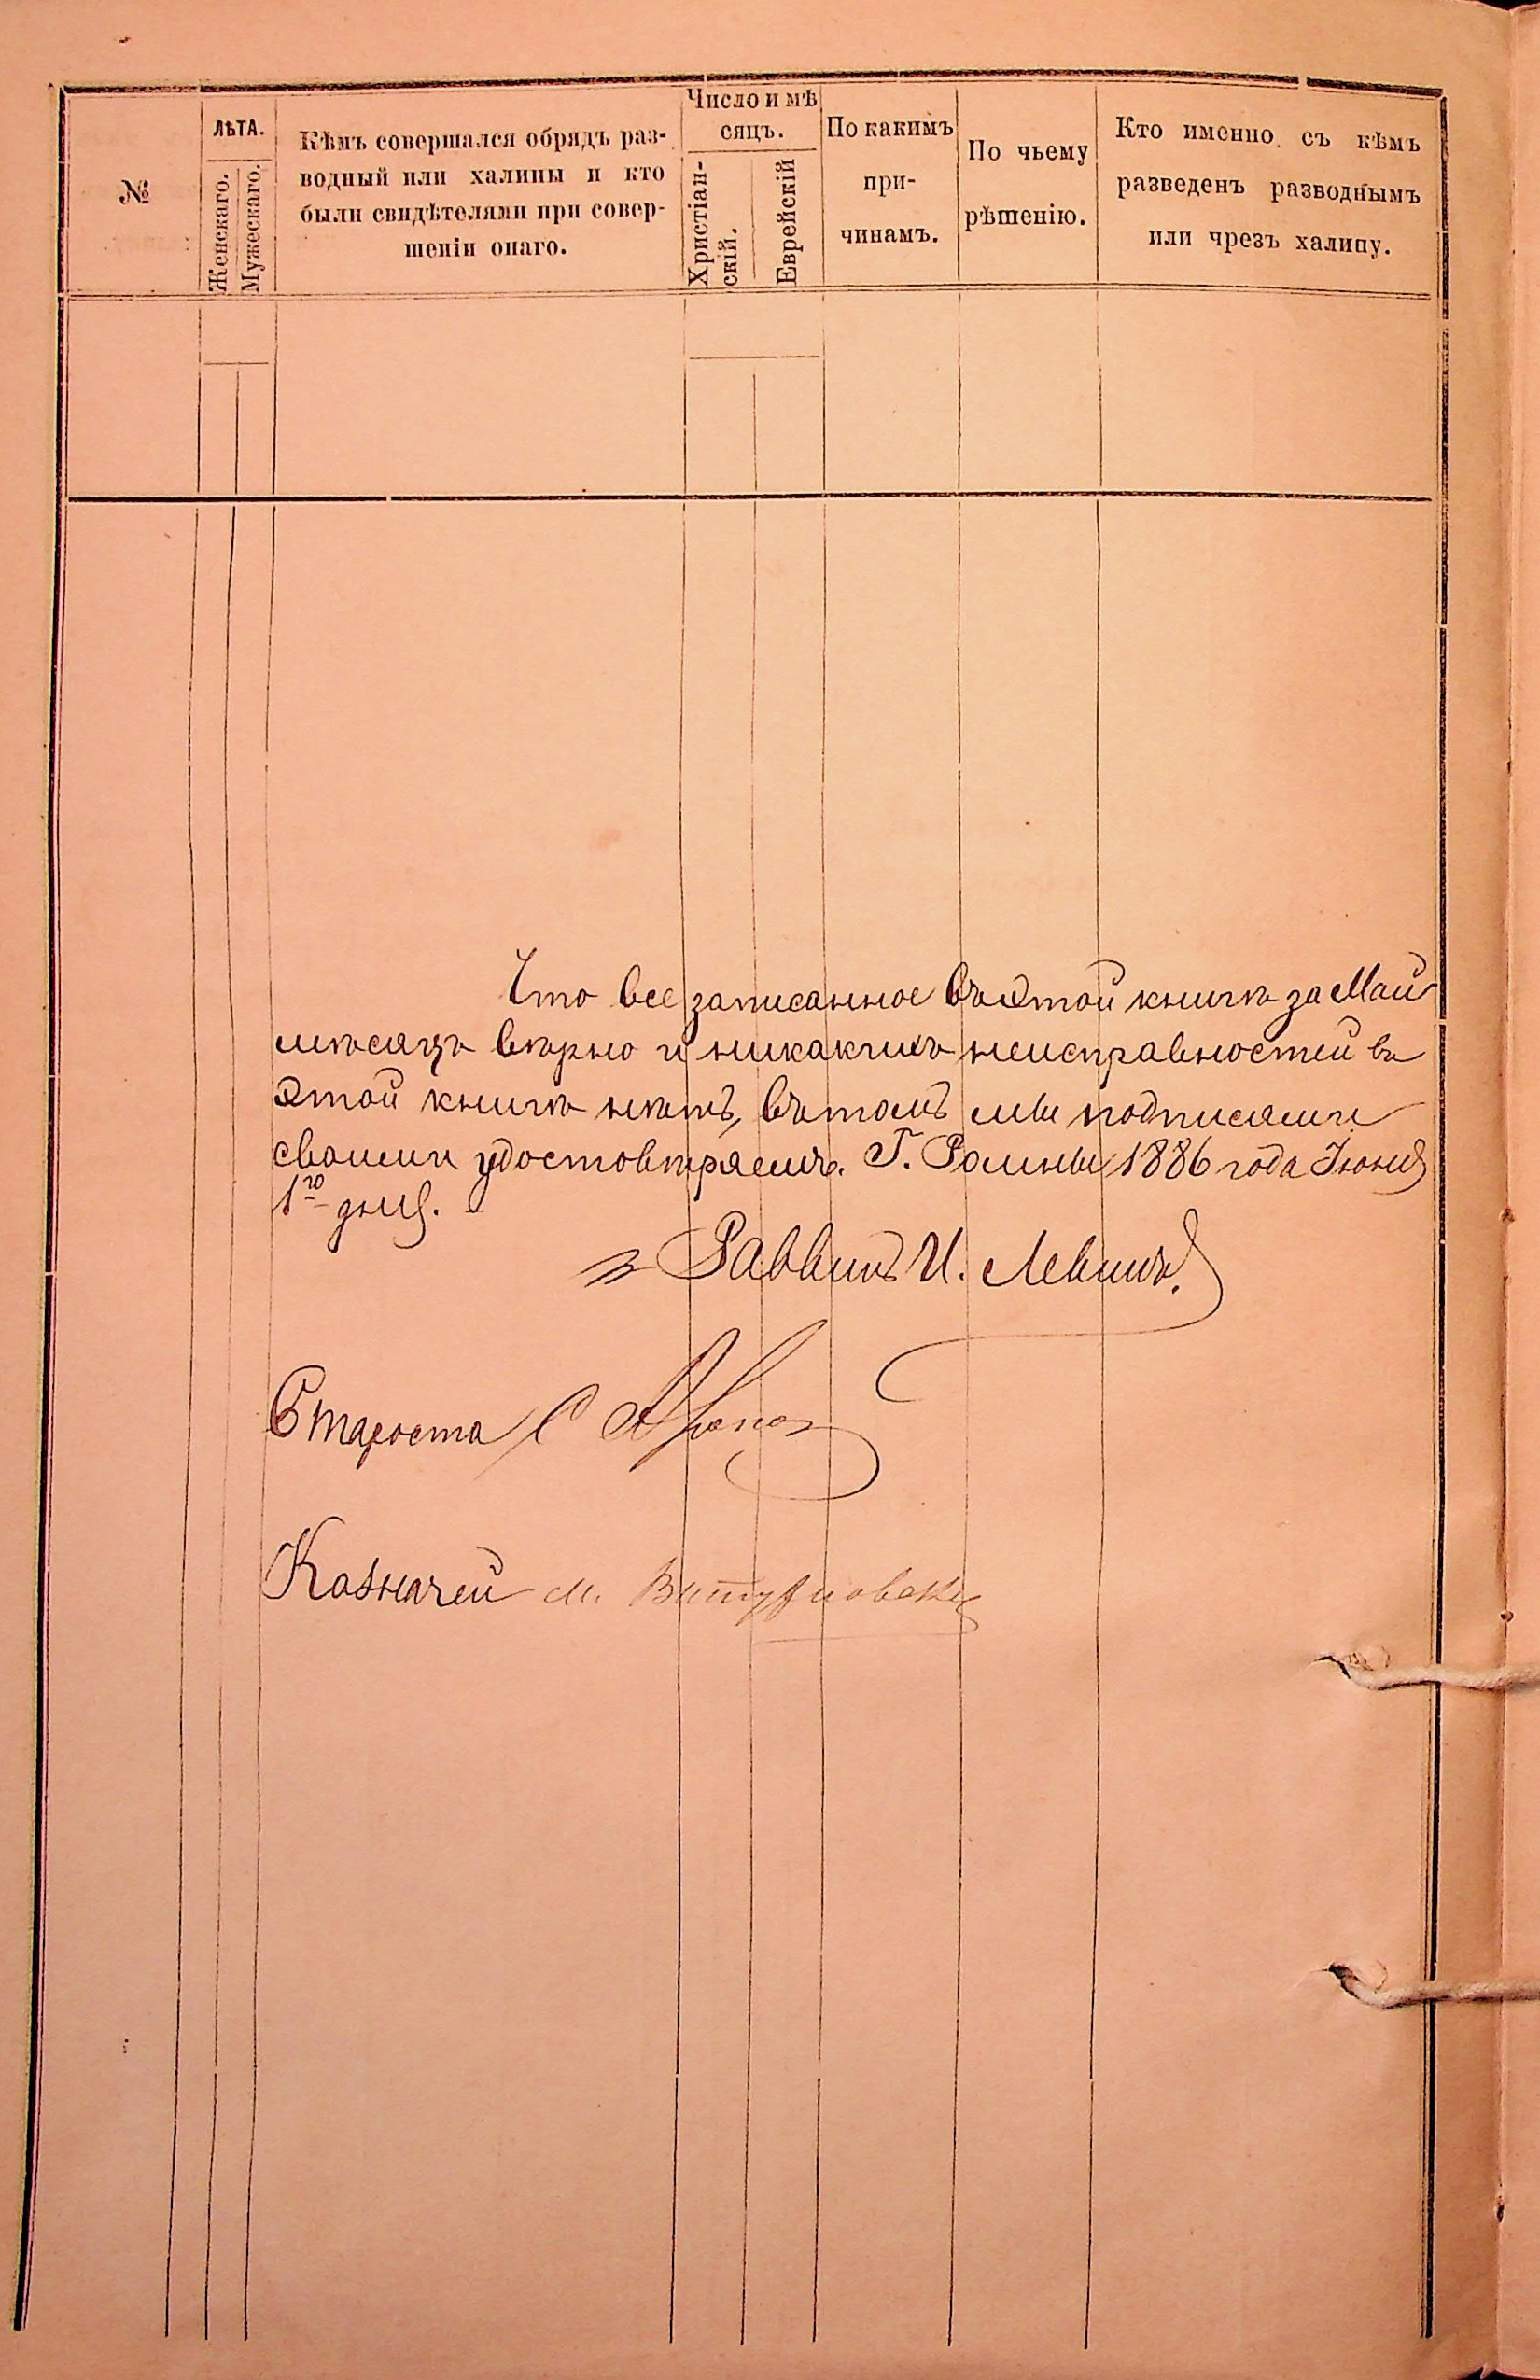 №
ЛѢТА.
Женскаго.
Мужескаго.
Кѣмъ совершался обрядъ раз-
водный или халицы и кто
были свидѣтелями при совер-
шеніи онаго.
Число и мѣ
сяцъ.
Христіан-
скій.
Еврейскій
По какимъ
при-
чинамъ.
По чьему
рѣшенію.
Кто именно съ кѣмъ
разведенъ разводнымъ
или чрезъ халицу.
Что все записанное въ этой книгѣ за Май
мѣсяцъ вѣрно и никакихъ неисправностей въ
этой книгѣ нѣтъ, въ томъ мы подписями
своими удостовѣряемъ. Г. Ромны 1886 года Іюня
1го дня.
Раввинъ И. Левинъ.
Староста С
Казначей М.